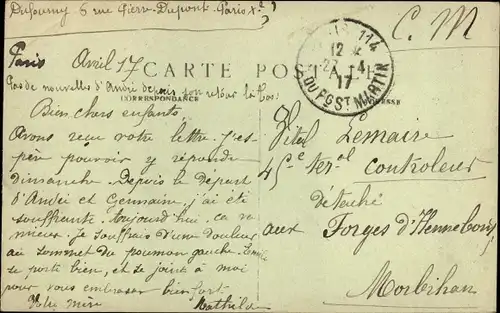 Dufourny 6 rue Pierre-Dupont-Paris X e
C. M
PARIS 114
12 *
27 - 4
17
DU FG ST MARTIN
Paris Avril 17
CARTE POSTALE
Pas de nouvelles d'André depuis son retour là-bas
CORRESPONDANCE
ADRESSE
Bien chers enfants.
Avons reçu votre lettre. J'es-
père pouvoir y répondre
dimanche. Depuis le départ
d'André et Germaine, j'ai été
souffrante. Aujourd'hui ça va
mieux. Je souffrais d'une douleur
au sommet du poumon gauche.
se porte bien, et se joint à moi
pour vous embrasser bien fort
Votre mère Mathilde
Vital Lemaire
45e ter al Controleur
détaché
aux Forges d'Hennebont
Morbihan